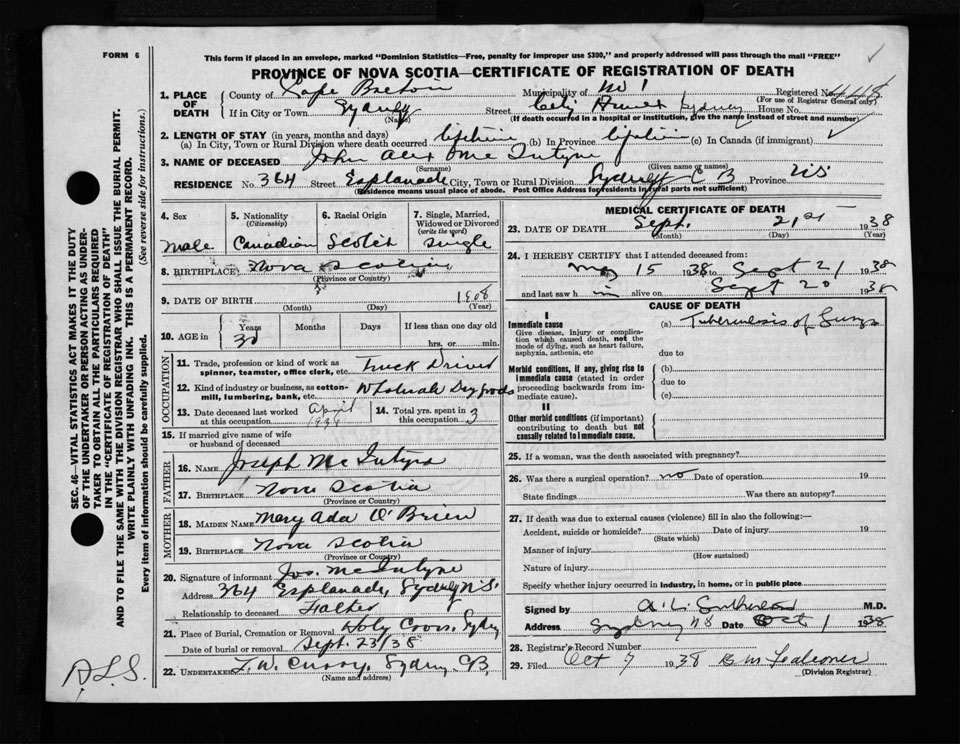 FORM 6
This form if placed in an envelope, marked "Dominion Statistics—Free, penalty for improper use $300," and properly addressed will pass through the mail "FREE"
PROVINCE OF NOVA SCOTIA—CERTIFICATE OF REGISTRATION OF DEATH
1. PLACE OF DEATH County of Cape Breton Municipality of No 1 Registered No.
(For use of Registrar General only)
If in City or Town Sydney Street City Sydney House No.
(Name) (If death occurred in a hospital or institution, give the name instead of street and number)
2. LENGTH OF STAY (in years, months and days)
(a) In City, Town or Rural Division where death occurred lifetime (b) In Province lifetime (c) In Canada (if immigrant)
3. NAME OF DECEASED John Alex McIntyre
(Surname) (Given name or names)
RESIDENCE No. 364 Street Esplanade City, Town or Rural Division Sydney C B Province N.S.
(Residence means usual place of abode. Post Office Address for residents in rural parts not sufficient)
4. Sex
male
5. Nationality (Citizenship)
Canadian
6. Racial Origin
Scotch
7. Single, Married, Widowed or Divorced (write the word)
single
8. BIRTHPLACE Nova Scotia
(Province or Country)
9. DATE OF BIRTH 1908
(Month) (Day) (Year)
10. AGE in Years Months Days If less than one day old
30 hrs. or min.
OCCUPATION
11. Trade, profession or kind of work as spinner, teamster, office clerk, etc. Truck Driver
12. Kind of industry or business, as cotton-mill, lumbering, bank, etc. Wholesale Dry goods
13. Date deceased last worked at this occupation April
14. Total yrs. spent in 3
15. If married give name of wife or husband of deceased
FATHER
16. Name Joseph McIntyre
17. Birthplace Nova Scotia
(Province or Country)
MOTHER
18. Maiden Name Mary Ada O'Brien
19. Birthplace Nova Scotia
(Province or Country)
20. Signature of informant Jos. McIntyre
Address 364 Esplanade, Sydney N.S.
Relationship to deceased Father
21. Place of Burial, Cremation or Removal Holy Cross, Sydney
Date of burial or removal Sept. 23/38
22. Undertaker F. W. Curry, Sydney CB,
(Name and address)
MEDICAL CERTIFICATE OF DEATH
23. DATE OF DEATH Sept. 21st 1938
(Month) (Day) (Year)
24. I HEREBY CERTIFY that I attended deceased from:
May 15 1938 to Sept 21 1938
and last saw him alive on Sept 20 1938
CAUSE OF DEATH
I
Immediate cause
Give disease, injury or complication which caused death, not the mode of dying, such as heart failure, asphyxia, asthenia, etc
(a) Tuberculosis of Lungs
due to
Morbid conditions, if any, giving rise to immediate cause (stated in order proceeding backwards from immediate cause).
(b)
due to
(c)
II
Other morbid conditions (if important) contributing to death but not causally related to immediate cause.
25. If a woman, was the death associated with pregnancy?
26. Was there a surgical operation? no Date of operation 19
State findings Was there an autopsy?
27. If death was due to external causes (violence) fill in also the following:—
Accident, suicide or homicide? Date of injury 19
(State which)
Manner of injury
(How sustained)
Nature of injury
Specify whether injury occurred in industry, in home, or in public place
Signed by A. L. Sutherland M.D.
Address Sydney NS Date Oct 1 1938
28. Registrar's Record Number
29. Filed Oct 7 1938
(Division Registrar)
SEC. 46—VITAL STATISTICS ACT MAKES IT THE DUTY
OF THE UNDERTAKER OR PERSON ACTING AS UNDERTAKER TO OBTAIN ALL THE PARTICULARS REQUIRED
IN THE "CERTIFICATE OF REGISTRATION OF DEATH"
AND TO FILE THE SAME WITH THE DIVISION REGISTRAR WHO SHALL ISSUE THE BURIAL PERMIT.
WRITE PLAINLY WITH UNFADING INK. THIS IS A PERMANENT RECORD.
Every item of information should be carefully supplied. (See reverse side for instructions.)
A.L.S.